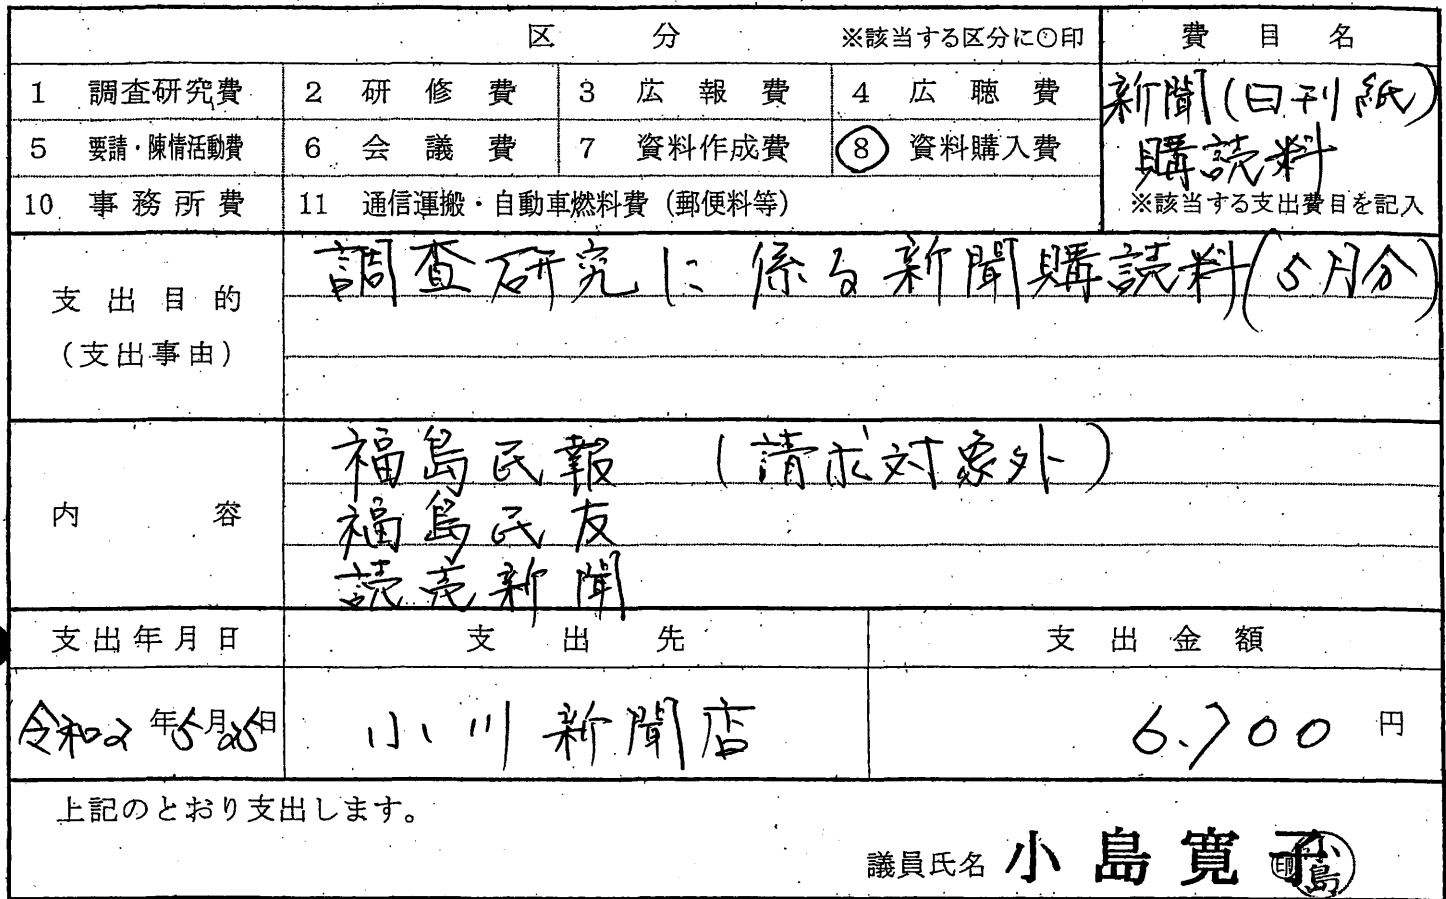 区 分 ※該当する区分に○印 費 目 名
1 調査研究費 2 研 修 費 3 広 報 費 4 広 聴 費 新聞(日刊紙)
5 要請・陳情活動費 6 会 議 費 7 資料作成費 8 資料購入費 購読料
10 事務所費 11 通信運搬・自動車燃料費(郵便料等) ※該当する支出費目を記入
支出目的 調査研究に係る新聞購読料(5月分)
(支出事由)
福島民報 (請求対象外)
内 容 福島民友
読売新聞
支出年月日 支 出 先 支 出 金 額
令和2年5月25日 小川新聞店 6.700 円
上記のとおり支出します。
議員氏名 小島寛子 印 小島